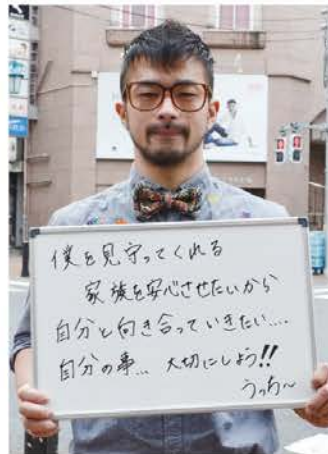 僕を見守ってくれる
家族を安心させたいから
自分と向き合っていきたい....
自分の事... 大切にしよう!!
うっち〜